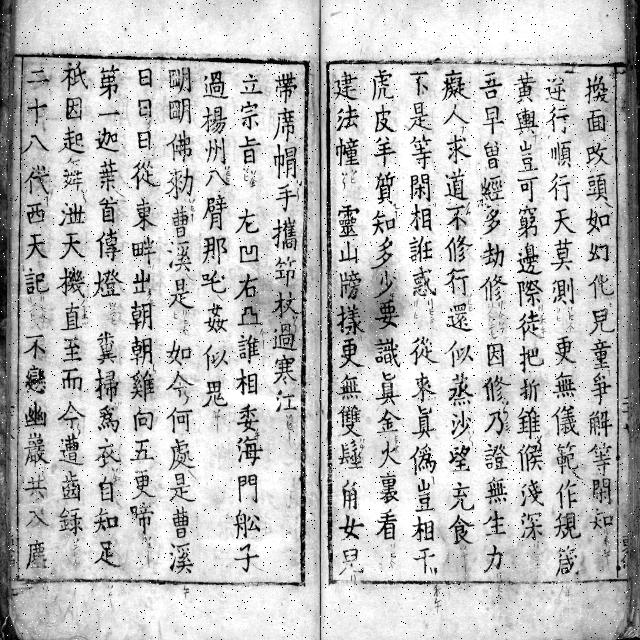 換面改頭如幻化兒童爭解等閑知
逆行順行天莫測 更無儀範作規箴
黃輿豈可窮邊際徒把折錐候淺深
吾早曾經多劫修 因修乃證無生力
癡人求道不修行還似蒸沙望充食
不是等閑相誑惑 從來眞僞豈相干
虎皮羊質知多少要識眞金火裏看
建法幢 靈山牓樣更無雙 角女兒
帶席帽手攜筇杖過寒江
立宗旨 左凹右凸誰相委海門舩子
過揚州八臂那吒姦似鬼
明明佛勑曹溪是 如今何處是曹溪
日日日從東畔出朝朝雞向五更啼
第一迦葉首傳燈 糞掃爲衣自知足
祇因起舞泄天機直至而今遭齒錄
二十八代西天記 不戀幽巖共入塵